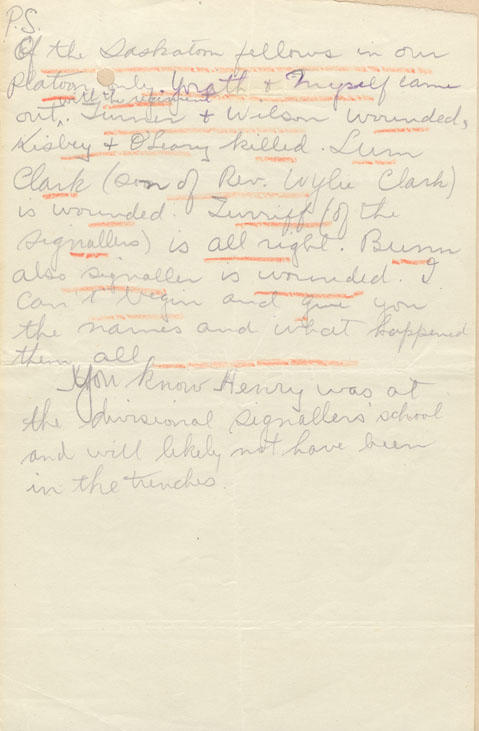 P.S.
Of the Saskatoon fellows in our
platoon only Youath & Myself came
with the regiment
out. Turner & Wilson wounded,
Kisbey & O'Leary killed. Lum
Clark (son of Rev. Wylie Clark)
is wounded. Turriff (of the
signallers) is all right. Bunn
also signaller is wounded. I
can't begin and give you
the names and what happened
them all
You know Henry was at
the divisional signallers' school
and will likely not have been
in the trenches.